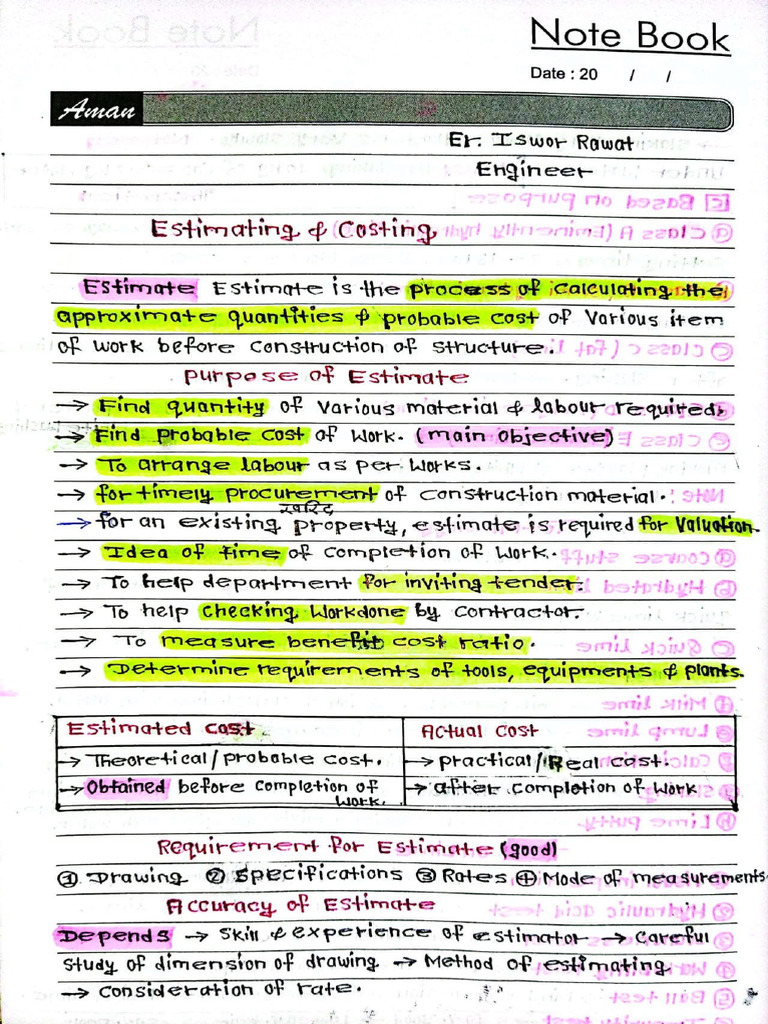 Note Book
Date : 20 / /
Aman
Er. Iswor Rawat
Engineer
Estimating & Costing
Estimate Estimate is the process of calculating the
approximate quantities & probable cost of various item
of work before construction of structure.
Purpose of Estimate
→ Find quantity of various material & labour required.
→ Find probable cost of work. (main objective)
→ To arrange labour as per works.
→ for timely procurement of construction material.
खरिद
→ for an existing property, estimate is required for valuation.
→ Idea of time of completion of work.
→ To help department for inviting tender.
→ To help checking workdone by contractor.
→ To measure benefit cost ratio.
→ Determine requirements of tools, equipments & plants.
Estimated cost Actual Cost
→ Theoretical/probable cost. → practical/Real cost.
→ Obtained before completion of work. → after completion of work
Requirement for Estimate (good)
① Drawing ② Specifications ③ Rates ④ Mode of measurements
Accuracy of Estimate
Depends → skill & experience of estimator → Careful
study of dimension of drawing → Method of estimating
→ consideration of rate.